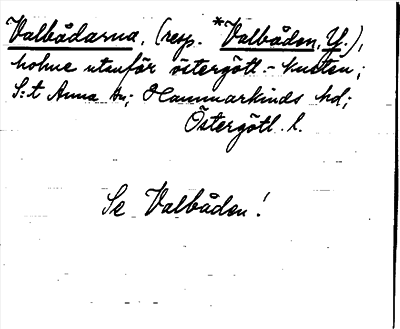 Valbådarna, (resp. *Valbåden, Y.),
holme utanför östergötl.-kusten;
S:t Anna sn; Hammarkinds hd;
Östergötl. l.
Se Valbåden!